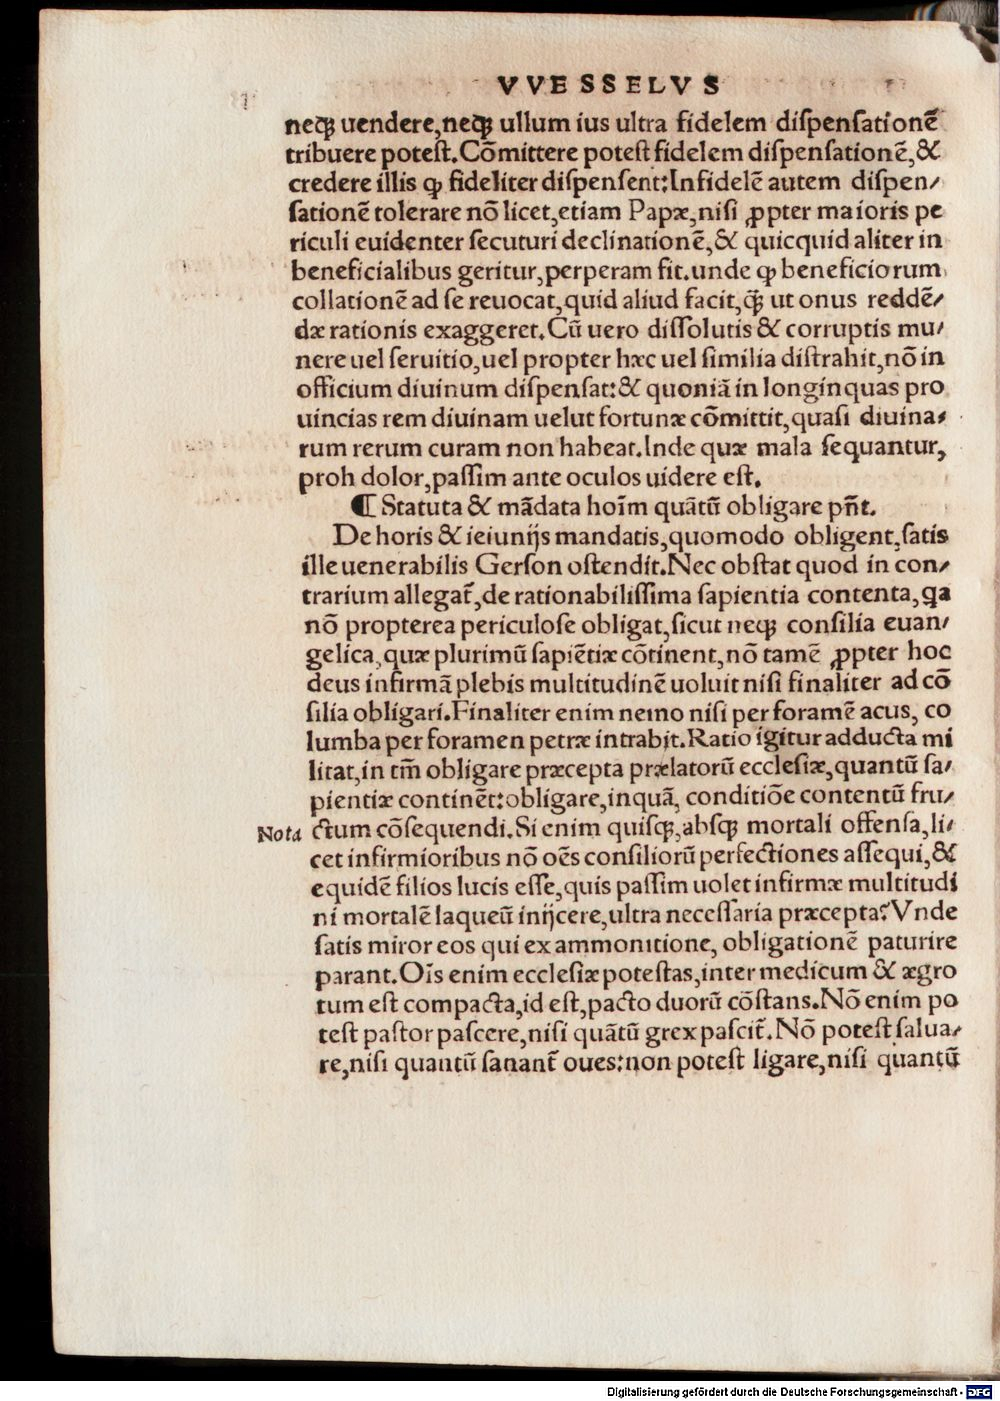 VVESSELVS
neqꝫ uendere,neqꝫ ullum ius ultra fidelem diſpenſationẽ
tribuere poteſt.Cõmittere poteſt fidelem diſpenſationẽ,&
credere illis ꝙ fideliter diſpenſent:Infidelẽ autem diſpen/
ſationẽ tolerare nõ licet,etiam Papæ,niſi ꝓpter maioris pe
riculi euidenter ſecuturi declinationẽ,& quicquid aliter in
beneficialibus geritur,perperam fit.unde ꝙ beneficiorum
collationẽ ad ſe reuocat,quid aliud facit,q̃ꝫ ut onus reddẽ/
dæ rationis exaggeret.Cũ uero diſſolutis & corruptis mu/
nere uel ſeruitio,uel propter hæc uel ſimilia diſtrahit,nõ in
officium diuinum diſpenſat:& quoniã in longinquas pro
uincias rem diuinam uelut fortunæ cõmittit,quaſi diuina/
rum rerum curam non habeat.Inde quæ mala ſequantur,
proh dolor,paſſim ante oculos uidere eſt.
¶ Statuta & mãdata hoĩm quãtũ obligare pñt.
De horis & ieiunijs mandatis,quomodo obligent,ſatis
ille uenerabilis Gerſon oſtendit.Nec obſtat quod in con/
trarium allegat̃,de rationabiliſſima ſapientia contenta,qa
nõ propterea periculoſe obligat,ſicut neqꝫ conſilia euan/
gelica,quæ plurimũ ſapiẽtiæ cõtinent,nõ tamẽ ꝓpter hoc
deus infirmã plebis multitudinẽ uoluit niſi finaliter ad cõ
ſilia obligari.Finaliter enim nemo niſi per foramẽ acus, co
lumba per foramen petræ intrabit.Ratio igitur adducta mi
litat,in tm̃ obligare præcepta prælatorũ eccleſiæ,quantũ ſa/
pientiæ continẽt:obligare,inquã, conditiõe contentũ fru/
Nota ctum cõſequendi.Si enim quiſqꝫ,abſqꝫ mortali offenſa,li/
cet infirmioribus nõ oẽs conſiliorũ perfectiones aſſequi,&
equidẽ filios lucis eſſe,quis paſſim uolet infirmæ multitudi
ni mortalẽ laqueũ inijcere,ultra neceſſaria præcepta? Vnde
ſatis miror eos qui ex ammonitione, obligationẽ paturire
parant.Oĩs enim eccleſiæ poteſtas,inter medicum & ægro
tum eſt compacta,id eſt,pacto duorũ cõſtans.Nõ enim po
teſt paſtor paſcere,niſi quãtũ grex paſcit̃.Nõ poteſt ſalua/
re,niſi quantũ ſanant̃ oues:non poteſt ligare,niſi quantũ
Digitalisierung gefördert durch die Deutsche Forschungsgemeinschaft - DFG